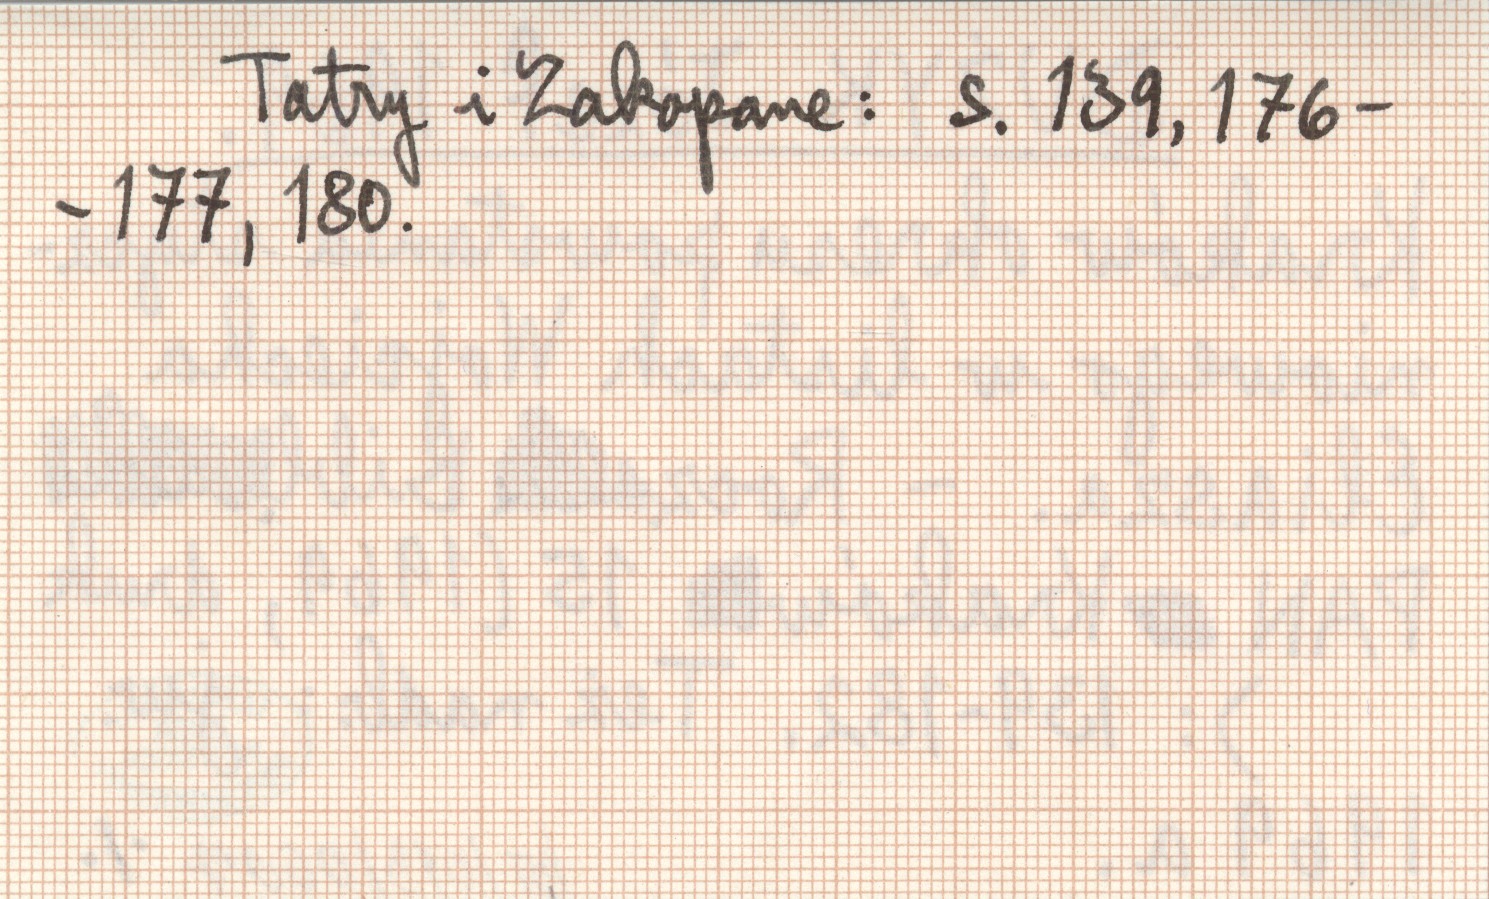 Tatry i Zakopane: s. 139, 176-
-177, 180.